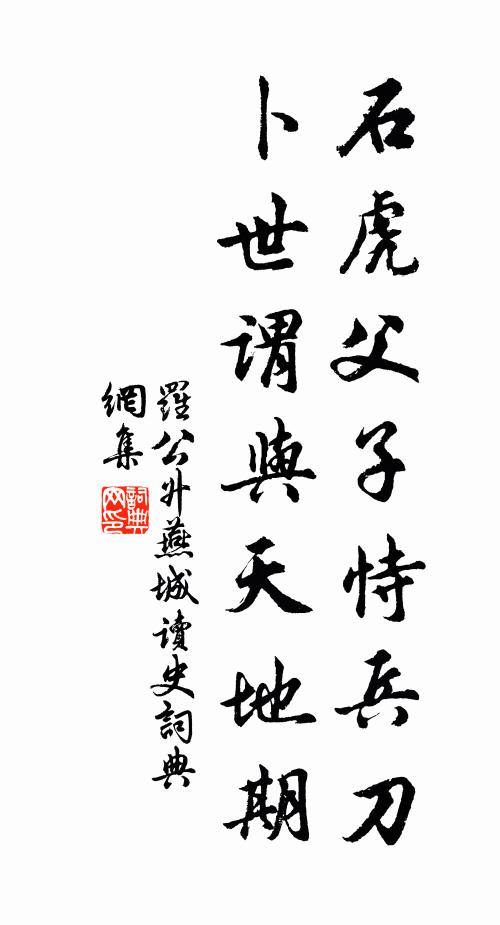 石虎父子恃兵刀
卜世謂與天地期
羅公升燕城讀史詞典
網集
詞典
网印